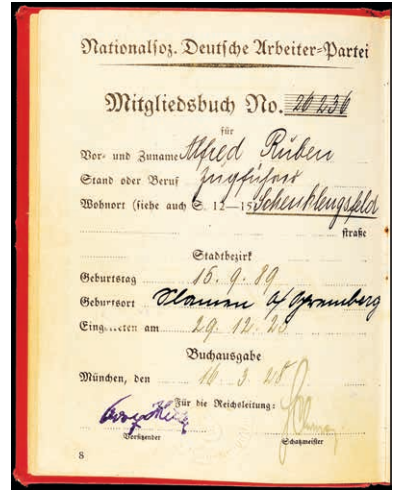 Nationalsoz. Deutsche Arbeiter-Partei
Mitgliedsbuch No. 20236
für
Vor- und Zuname Alfred Ruben
Stand oder Beruf Zugführer
Wohnort (siehe auch S. 12—15) Schenklengsfeld
straße
Stadtbezirk
Geburtstag 15. 9. 89
Geburtsort
Eingetreten am 29. 12. 25
Buchausgabe
München, den 16. 3. 28
Für die Reichsleitung:
Vorsitzender Schatzmeister
8